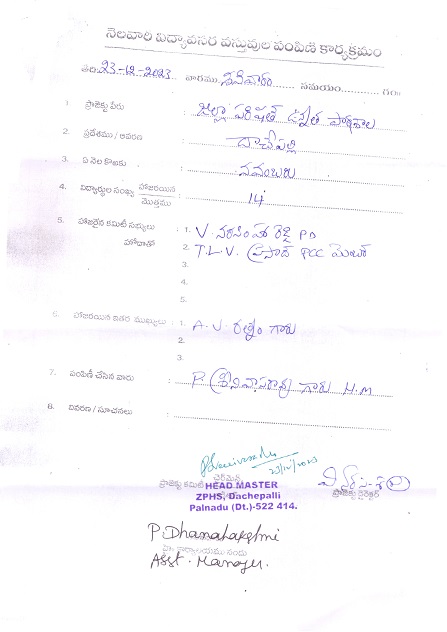 నెలవారి విద్యావసర వస్తువుల పంపిణీ కార్యక్రమం
తేది: 23-12-2023 వారము శనివారం సమయం గం॥
1. ప్రాజెక్టు పేరు : జిల్లా పరిషత్ ఉన్నత పాఠశాల
2. ప్రదేశము / ఆవరణ : దాచేపల్లి
3. ఏ నెల కొఱకు : నవంబరు
4. విద్యార్థుల సంఖ్య హాజరయిన : 14
మొత్తము
5. హాజరైన కమిటీ సభ్యులు : 1. V. నరసింహా రెడ్డి PD
హోదాతో 2. T.L.V. ప్రసాద్ PCC మెంబర్
3.
4.
5.
6. హాజరయిన ఇతర ముఖ్యులు : 1. A.V. రత్నం గారు
2.
3.
7. పంపిణీ చేసిన వారు : P. శ్రీనివాసరావు గారు H.M
8. వివరణ / సూచనలు :
23/12/2023
ఛైర్మెన్
ప్రాజెక్టు కమిటీ HEAD MASTER
ZPHS, Dachepalli
Palnadu (Dt.)-522 414.
ప్రాజెక్టు డైరెక్టర్
P Dhanalakshmi
Asst. Manager.